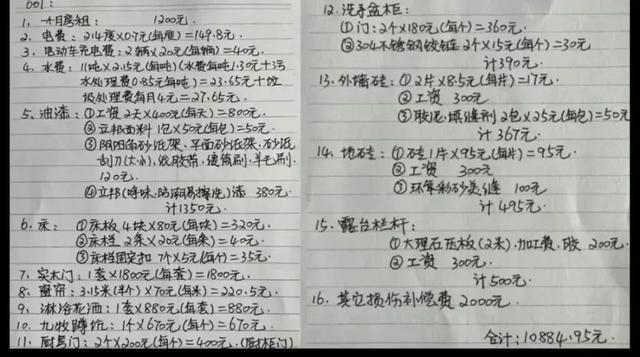 001:
1. 一个月房租: 1200元.
2. 电费: 214度×0.7元(每度)=149.8元.
3. 电动车充电费: 2辆×20元(每辆)=40元.
4. 水费: 11吨×2.15元(每吨)(水费每吨1.30元+污
水处理费0.85元每吨)=23.65元+垃
圾处理费每月4元=27.65元.
5. 油漆: ①工资 2天×400元(每天)=800元.
②立邦面料 1包×50元(每包)=50元.
③阴阳角砂纸架、平面砂纸架、砂纸
刮刀(大小)、纸胶带、滚筒刷、羊毛刷.
120元.
④立邦(呼吸,防潮易擦洗)漆 380元.
计1350元.
6. 床: ①床板 4块×80元(每块)=320元.
②床栏 2条×20元(每条)=40元.
③床栏固定扣 7个×5元(每个)=35元.
7. 实木门: 1套×1800元(每套)=1800元.
8. 窗帘: 3.15米(半个)×70元(每米)=220.5元.
9. 淋浴花洒: 1套×880元(每套)=880元.
10. 九牧蹲坑: 1个×670元(每个)=670元.
11. 厨房门: 2个×200元(每个)=400元.(厨柜门)
12. 洗手盆柜:
①门: 2个×180元(每个)=360元.
②304不锈钢铰链 2个×15元(每个)=30元
计390元.
13. 外墙砖: ①2片×8.5元(每片)=17元.
②工资 300元
③胶泥、填缝剂 2包×25元(每包)=50元
计367元.
14. 地砖: ①砖1片×95元(每片)=95元.
②工资 300元
③环氧彩砂美缝 100元
计495元.
15. 露台栏杆:
①大理石压板(2米)、加工费、胶 200元.
②工资 300元.
计500元.
16. 其它损伤补偿费 2000元.
合计: 10884.95元.